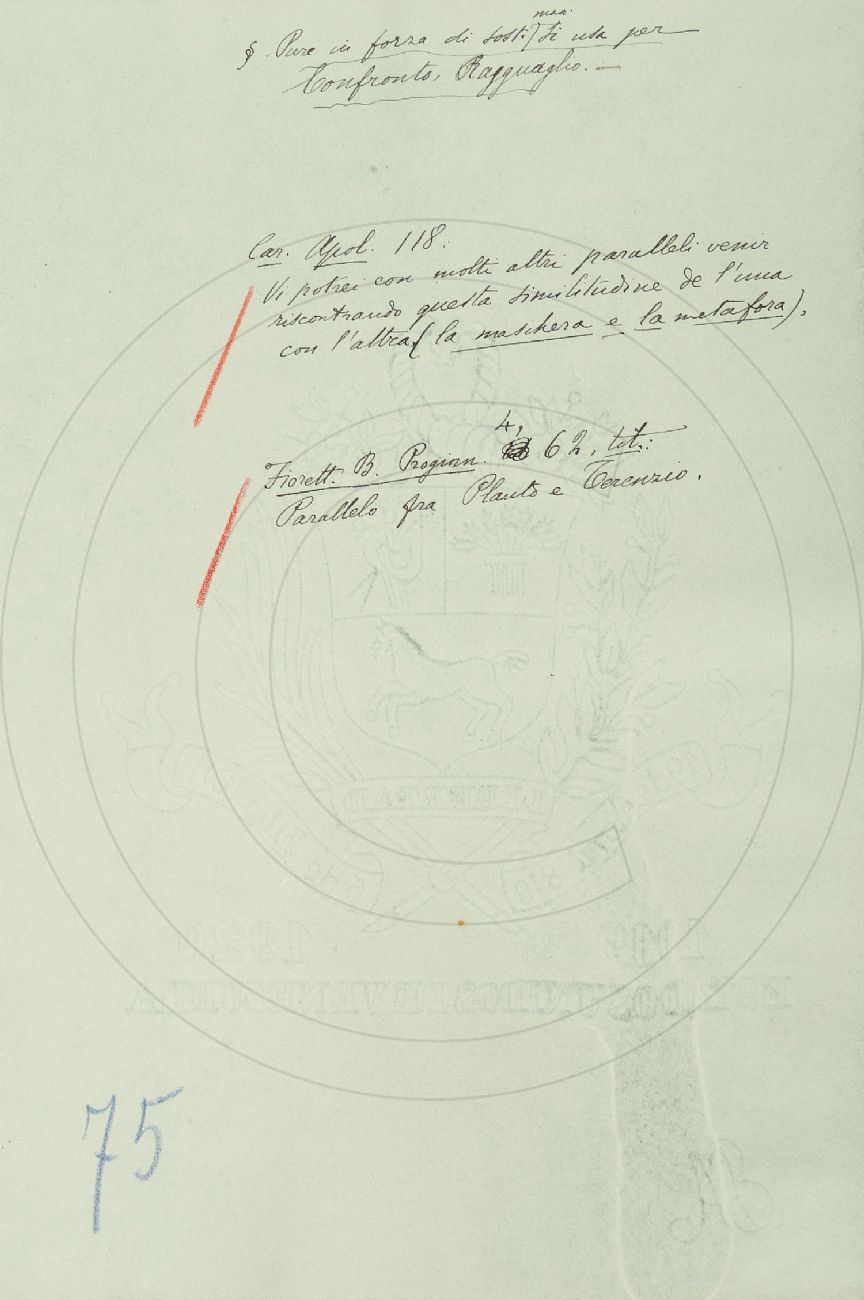 §. Pure in forza di Sost. mas. si usa per
Confronto, Ragguaglio. —
Car. Apol. 118.
Vi potrei con molti altri paralleli venir
riscontrando questa similitudine de l'una
con l'altra (la maschera e la metafora).
Fiorett. B. Proginn. 4, 62, tit.:
Parallelo fra Plauto e Terenzio.
LIBERTAD
1920
DE VENEZUELA
75